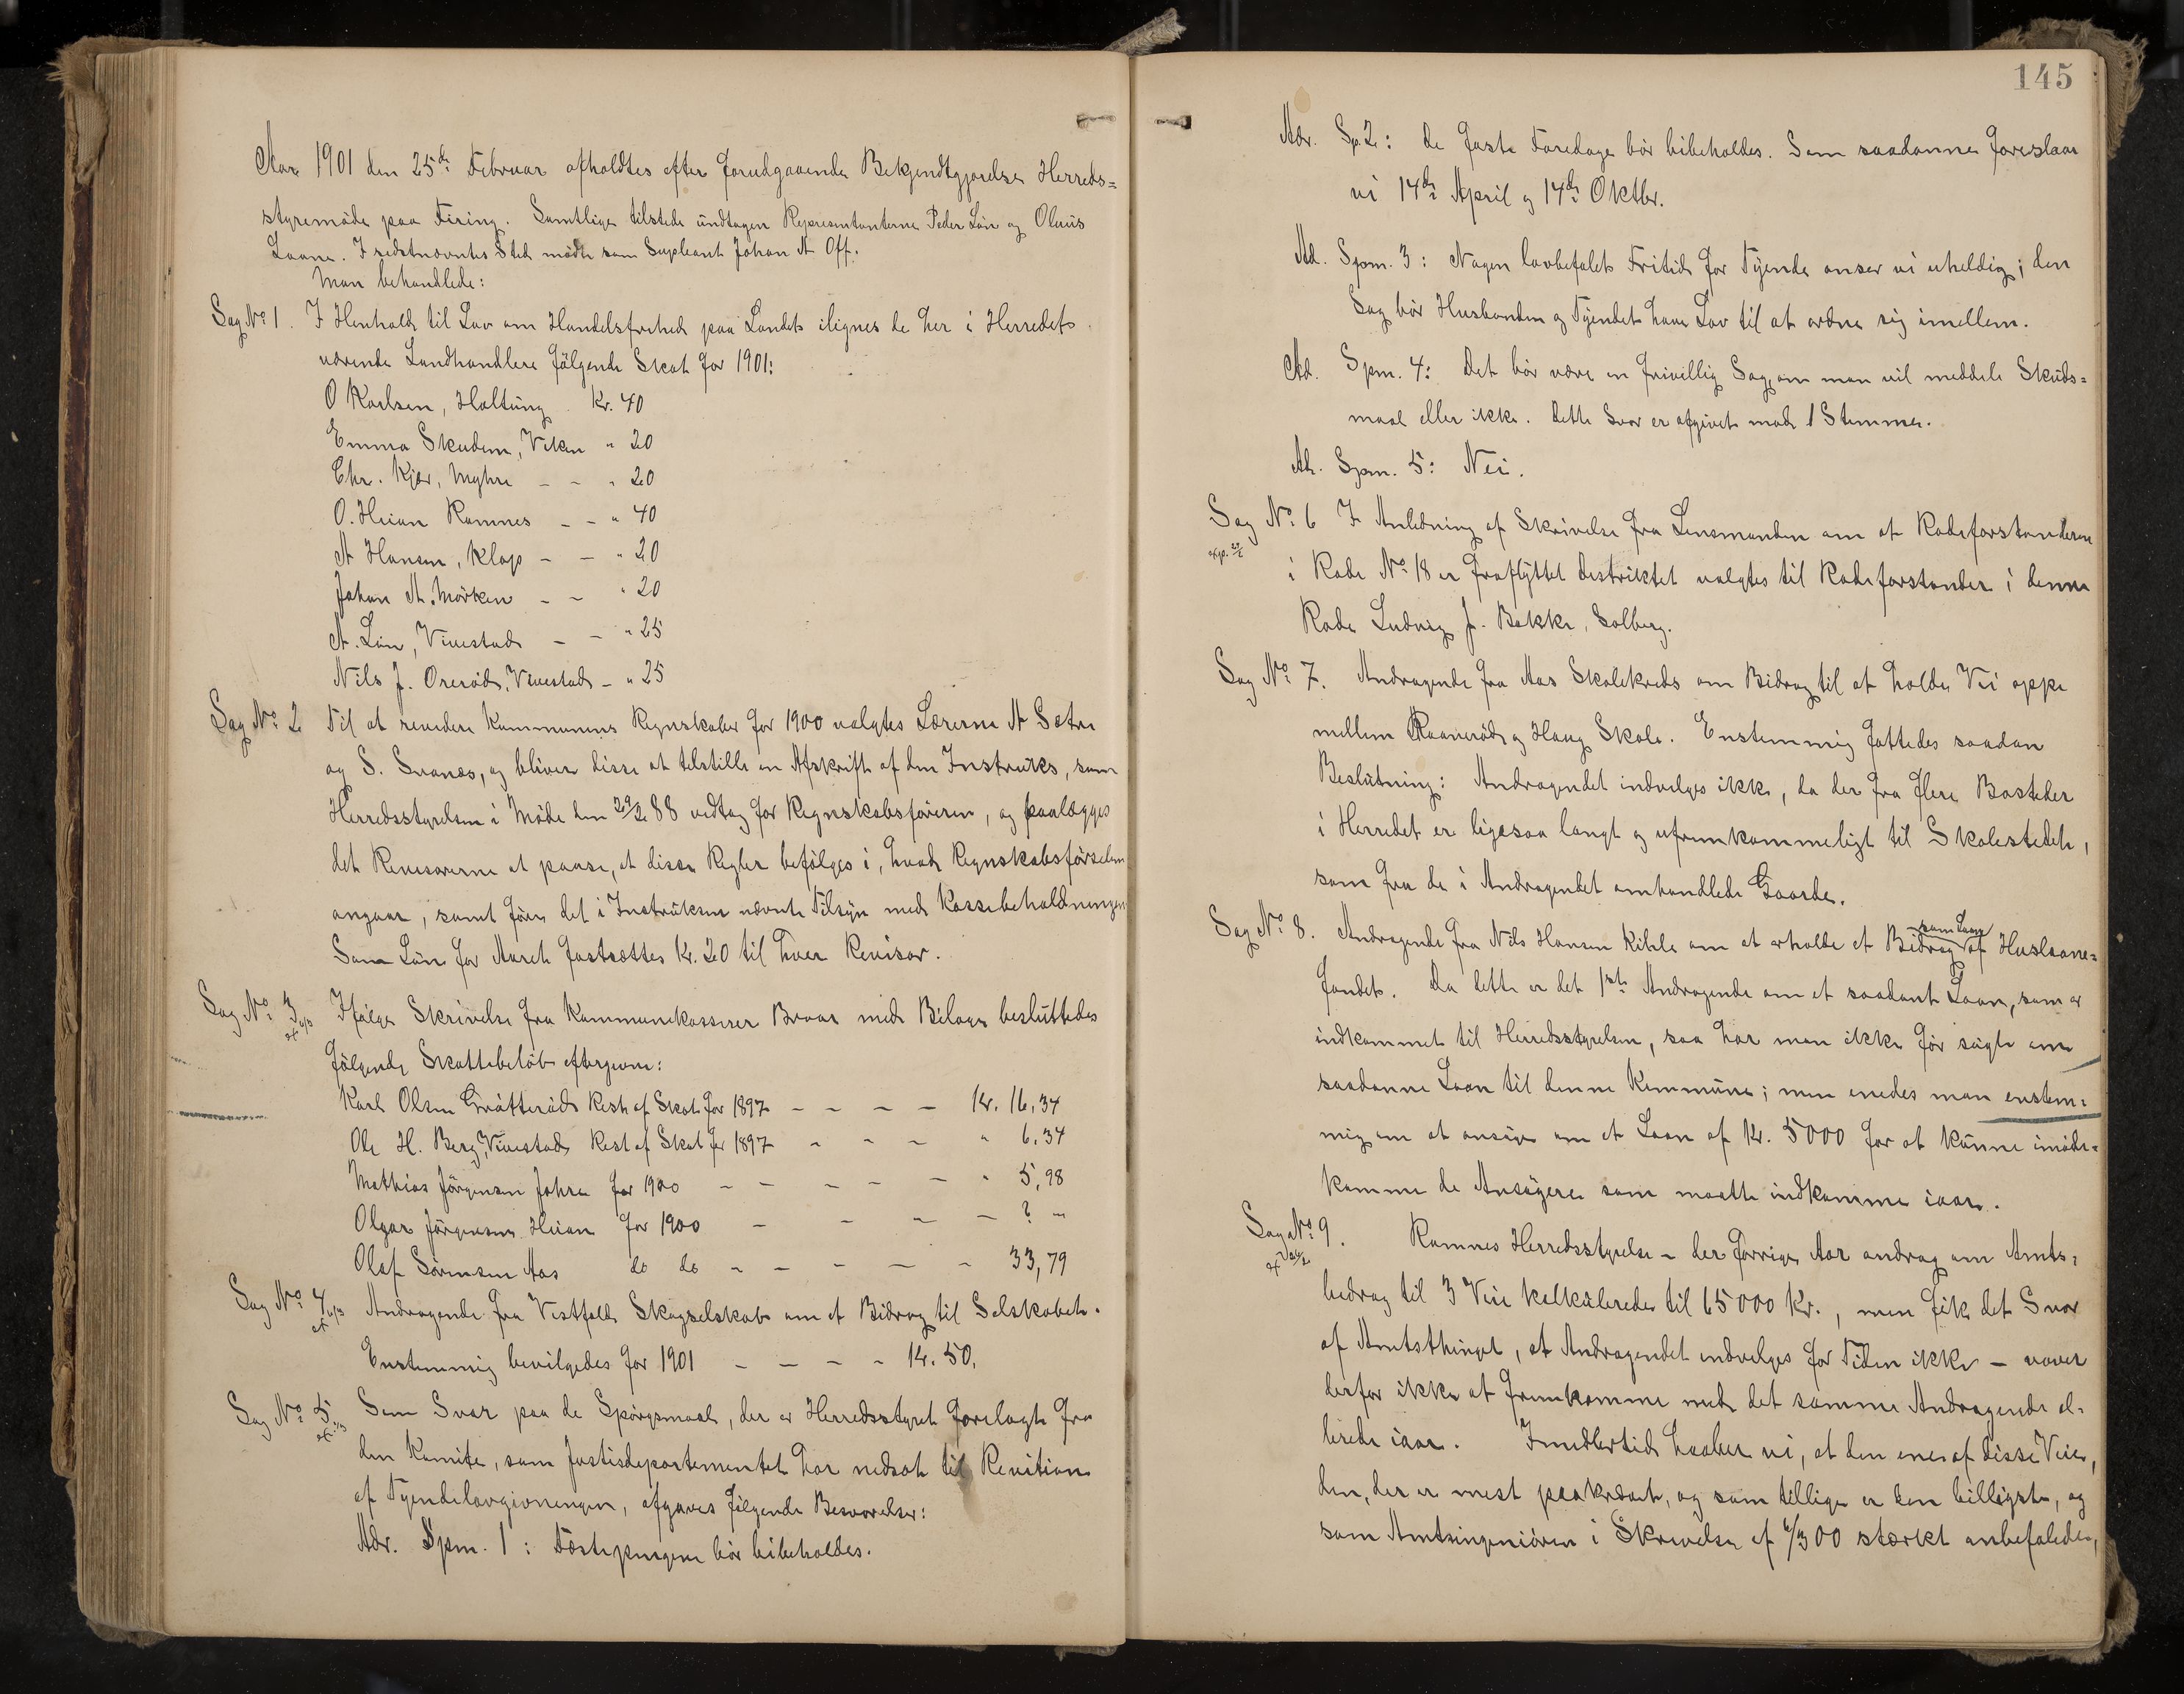 Aar 1901 den 25de Februar afholdtes efter forudgaaende Bekjendtgjørelse Herreds=
styremøde paa Firing. Samtlige tilstede undtagen Repræsentanterne Peder Løn og Oluus
Laane. I sidstnævntes Sted mødte som Supleant Johan A Off.
Man behandlede:
Sag No 1. I Henhold til Lov om Handelsfrihed paa Landet ilignes de her i Herredet
værende Landhandlere følgende Skat for 1901:
O Karlsen, Holtung Kr. 40
Emma Skuden, Viken " 20
Chr. Kjær, Myhre - - " 20
O. Heian Ramnes - - " 40
A Hansen, Klop - - " 20
Johan A. Mørken - - " 20
A. Løn, Vivestad - - " 25
Nils J. Orerød, Vivestad - " 25
Sag No 2 Til at revidere Kommunens Regnskaber for 1900 valgtes Lærerne A Sætre
og S. Svanæs, og bliver disse at tilstille en Afskrift af den Instruks, som
Herredsstyrelsen i Møde den 29/2 88 vedtog for Regnskabsføreren, og paalægges
det Revisorerne at paase, at disse Regler befølges i, hvad Regnskabsførselen
angaar, samt føre det i Instruksen nævnte Tilsyn med Kassebeholdningen
Som Løn for Aaret fastsættes Kr. 20 til hver Revisor.
Sag No 3 Ifølge Skrivelse fra Kommunekasserer Bruar med Bilage besluttedes
følgende Skattebeløb eftergivne:
Karl Olsen Gråtterød Rest af Skat for 1897 - - - - Kr. 16,34
Ole H. Berg, Vivestad Rest af Skat for 1897 - - - " 6,34
Mathias Jørgensen Johre for 1900 - - - - - " 5,98
Olgar Jørgensen Heian for 1900 - - - - ? "
Olaf Sørensen Aas do do - - - - - 33,79
Sag No 4 Andragende fra Vestfold Skogselskab om et Bidrag til Selskabet.
Enstemmig bevilgedes for 1901 - - - - Kr. 50,
Sag No 5 Som Svar paa de Spørgsmaal, der er Herredsstyret forelagt fra
den Komite, som Justisdepartementet har nedsat til Revition
af Tyendelovgivningen, afgaves følgende Besvarelser:
Adr. Spm. 1: Fæstepengene bør bibeholdes.
145
Adr. Sp. 2: de faste Faredage bør bibeholdes. Som saadanne foreslaar
vi 14de April og 14de Oktbr.
Ad. Spm. 3: Nogen lovbefalet Fritid for Tyende anser vi uheldig; den
Sag bør Husbonden og Tyendet have Lov til at ordne sig imellem.
Ad. Spm. 4: Det bør være en frivillig Sag, om man vil meddele Skuds=
maal eller ikke. dette Svar er afgivet mod 1 Stemme.
Ad. Spm. 5: Nei.
Sag No 6 I Anledning af Skrivelse fra Lensmanden om at Rodeforstanderen
i Rode No 18 er fraflyttet distriktet valgtes til Rodeforstander i denne
Rode Ludvig J. Bakke, Solberg.
Sag No 7. Andragende fra Aas Skolekreds om Bidrag til at holde Vei oppe
mellem Raanerød og Haug Skole. Enstemmig fattedes saadan
Beslutning: Andragendet indvilges ikke, da der fra flere Bosteder
i Herredet er ligesaa langt og ufremkommeligt til Skolestedet,
som fra de i Andragendet omhandlede Gaarde.
Sag No 8. Andragende fra Nils Hansen Kihle om at erholde et Bidrag som Laan af Huslaane=
fondet. Da dette er det 1ste Andragende om et saadant Laan, som er
indkommet til Herredsstyrelsen, saa har man ikke før søgt om
saadanne Laan til denne Kommune; men enedes man enstem=
mig om at ansøge om et Laan af Kr. 5000 for at kunne imøde=
komme de Ansøgere som maatte indkomme iaar.
Sag No 9. Ramnes Herredsstyrelse - der forrige Aar androg om Amts=
bidrag til 3 Veie kalkulerede til 65000 Kr., men fik det Svar
af Amtsthinget, at Andragendet indvilges for Tiden ikke - vover
derfor ikke at fremkomme med det samme Andragende al=
lerede iaar. Imidlertid haaber vi, at den ene af disse Veie,
den, der er mest paakrævet, og som tillige er den billigste, og
som Amtsingeniøren i Skrivelse af 6/3 00 stærkt anbefalede,